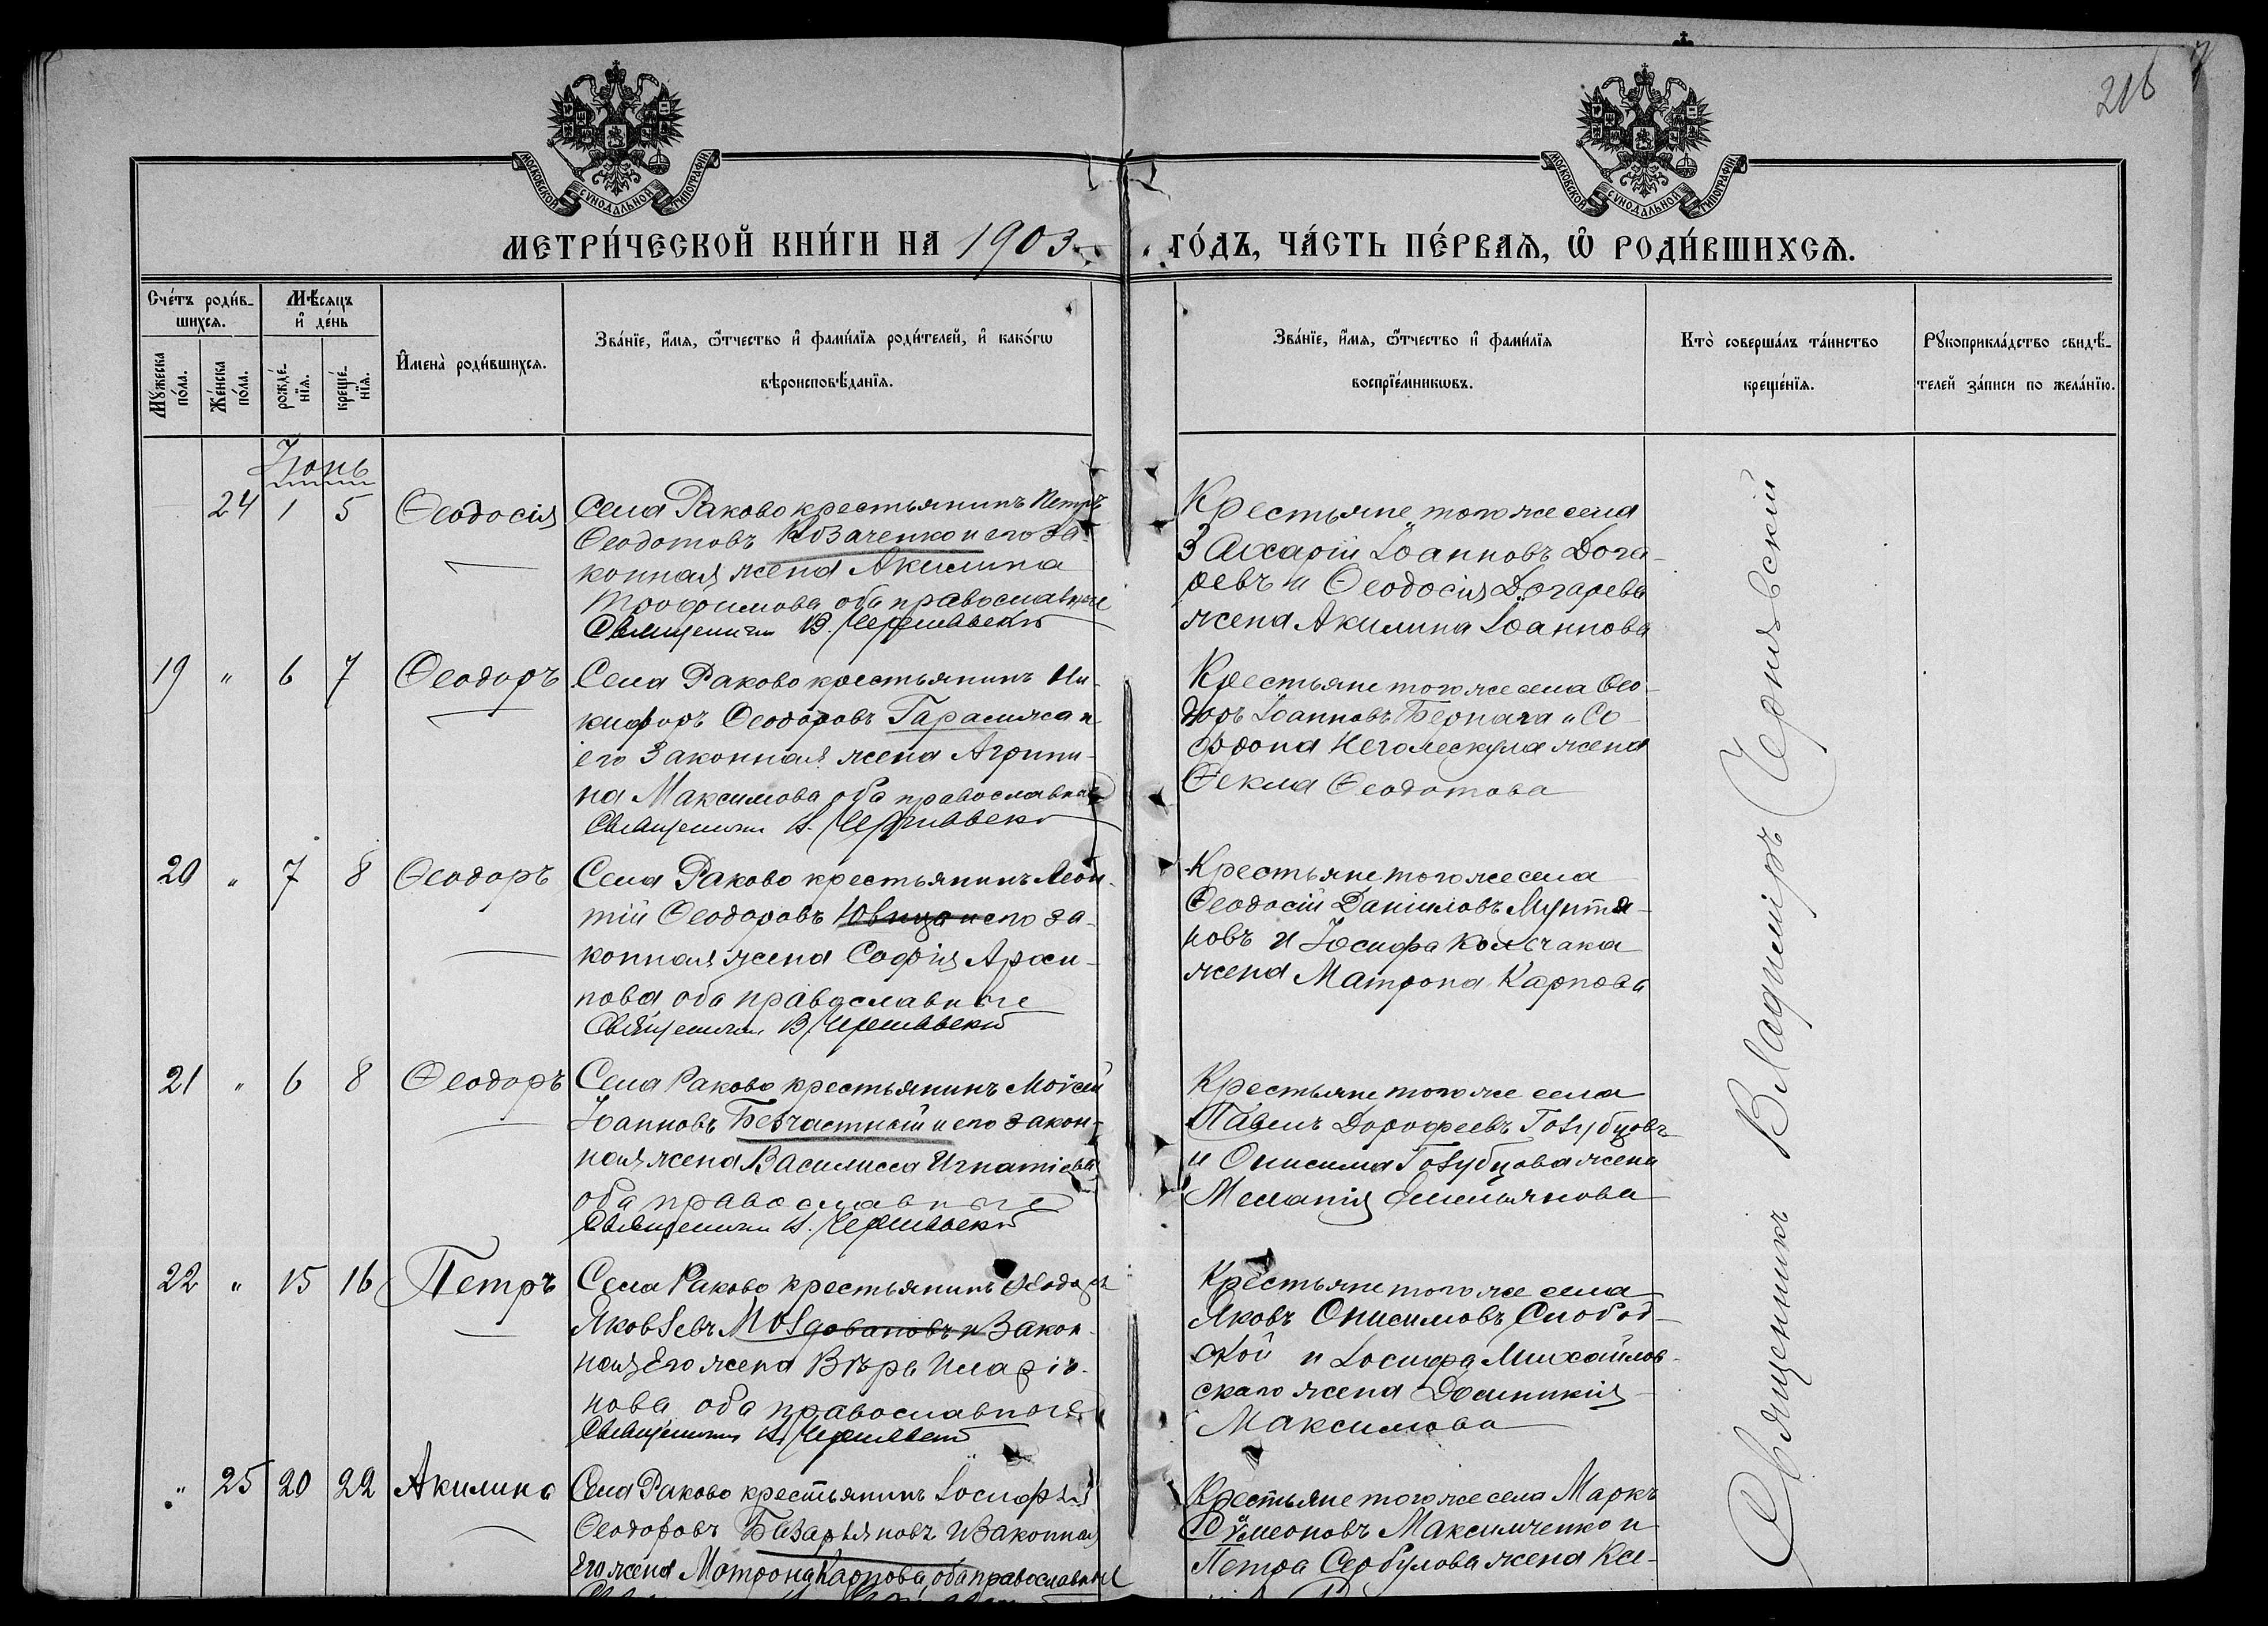 216
МОСКОВСКОЙ СѴНОДАЛЬНОЙ ТИПОГРАФІИ.
МОСКОВСКОЙ СѴНОДАЛЬНОЙ ТИПОГРАФІИ.
МЕТРИ́ЧЕСКОЙ КНИ́ГИ НА 1903 ГО́ДЪ, ЧА́СТЬ ПЕ́РВАѦ, Ѽ РОДИ́ВШИХСѦ.
Сче́тъ роди́в-
шихсѧ.
Мꙋжеска по́ла.
Же́нска по́ла.
Мѣ́сѧцъ
и҆ де́нь
рожде́-
нїѧ.
креще́-
нїѧ.
И҆мена̀ роди́вшихсѧ.
Зва́нїе, и҆́мѧ, ѻ҆́тчество и҆ фамѝлїѧ роди́телей, и҆ како́гѡ
вѣроисповѣ́данїѧ.
Зва́нїе, и҆́мѧ, ѻ҆́тчество и҆ фамѝлїѧ
воспрїе́мникѡвъ.
Кто̀ соверша́лъ та́инство
креще́нїѧ.
Рꙋкоприкла́дство свидѣ́-
телей за́писи по жела́нїю.
Іюнь
24 1 5 Ѳеодосія
Села Раково крестьянинъ Петръ
Ѳеодотовъ Козаченко и его за-
конная жена Акилина
Трофимова оба православные
Священникъ В. Чернявскій
Крестьяне того же села
Захарій Іоанновъ Дога-
ревъ и Ѳеодосія Догарева
жена Акилина Іоаннова
19 " 6 7 Ѳеодоръ
Села Раково крестьянинъ Ни-
кифоръ Ѳеодоровъ Гарасимса и
его законная жена Агрипи-
на Максимова оба православные
Священникъ В. Чернявскій
Крестьяне того же села Ѳео-
доръ Іоанновъ Бернага и Со-
фрона Неголескула жена
Ѳекла Ѳеодотова
20 " 7 8 Ѳеодоръ
Села Раково крестьянинъ Леон-
тій Ѳеодоровъ Ювица и его за-
конная жена Софія Архи-
пова оба православные
Священникъ В. Чернявскій
Крестьяне того же села
Ѳеодосій Даніиловъ Мунтя-
новъ и Іосифа Колчака
жена Матрона Карпова
21 " 6 8 Ѳеодоръ
Села Раково крестьянинъ Моисей
Іоанновъ Безчастный и его закон-
ная жена Василисса Игнатіева
оба православные
Священникъ В. Чернявскій
Крестьяне того же села
Павелъ Дорофеевъ Голубцовъ
и Онисима Голубцова жена
Меланія Емельянова
22 " 15 16 Петръ
Села Раково крестьянинъ Ѳеодоръ
Яковлевъ Молдовановъ и закон-
ная его жена Вѣра Иларіо-
нова оба православные
Священникъ В. Чернявскій
Крестьяне того же села
Яковъ Онисимовъ Слобод-
ской и Іосифа Михайлов-
скаго жена Домникія
Максимова
" 25 20 22 Акилина
Села Раково крестьянинъ Іосифъ
Ѳеодоровъ Базарьяновъ и законная
его жена Матрона Карпова, оба православные
Крестьяне того же села Маркъ
Сѵмеоновъ Максимченко и
Петра Сербулова жена Ксе-
Священникъ Владиміръ Чернявскій